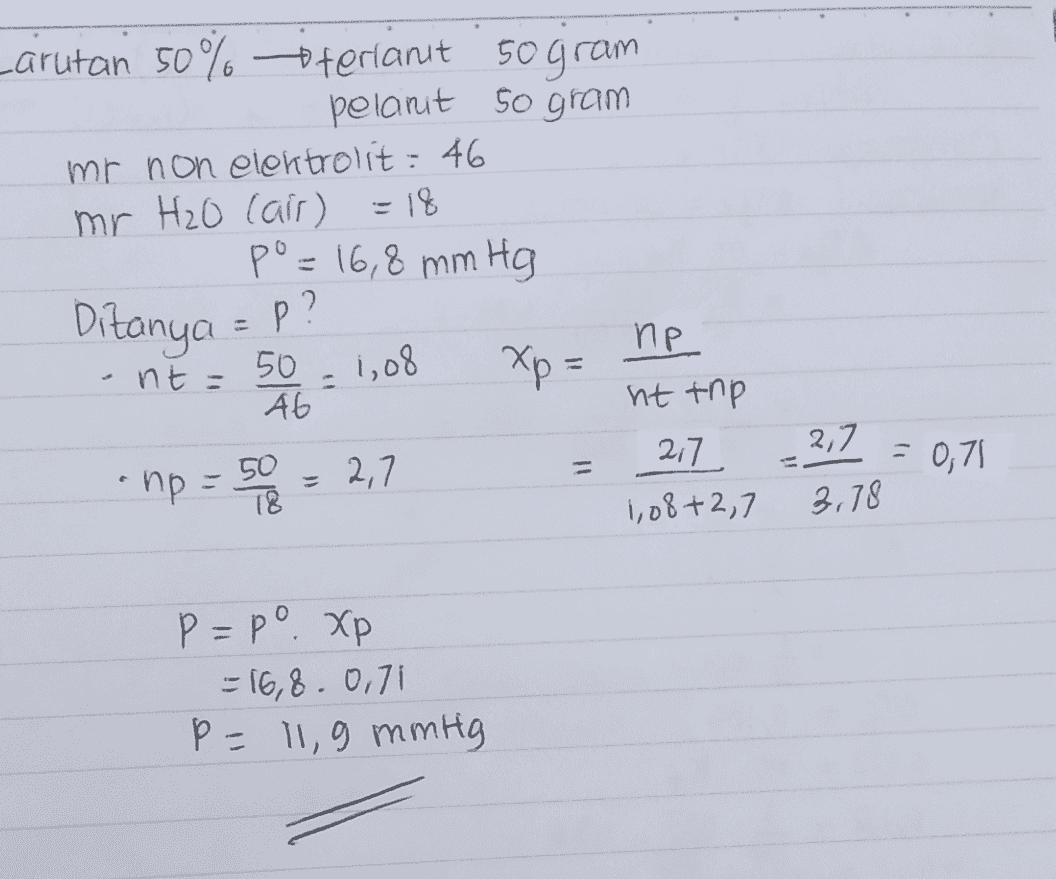 Larutan 50% → terlarut 50 gram
pelarut 50 gram
mr non elektrolit = 46
mr H₂O (air) = 18
P° = 16,8 mm Hg
Ditanya = P?
· nt = 50/46 = 1,08
xp = np/nt + np
· np = 50/18 = 2,7
= 2,7/1,08 + 2,7 = 2,7/3,78 = 0,71
P = P°. xp
= 16,8 . 0,71
P = 11,9 mmHg